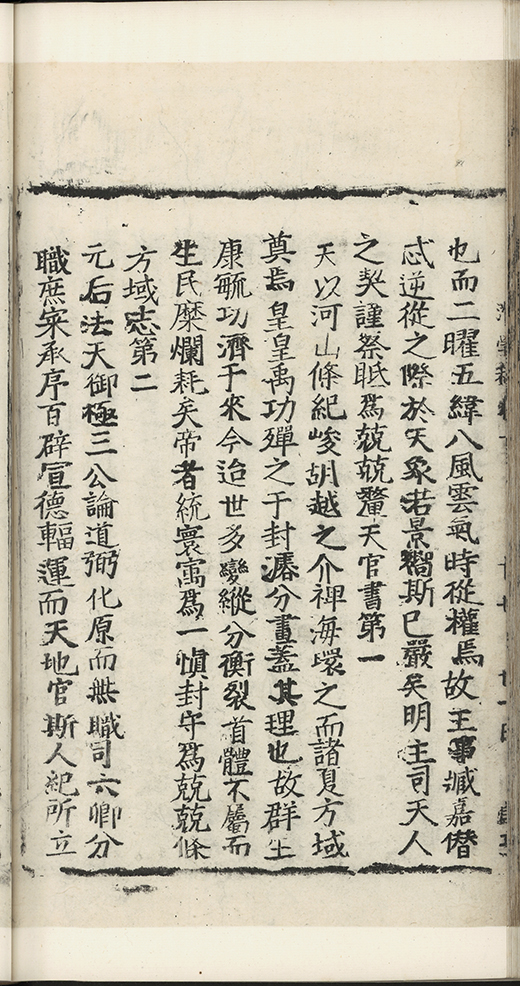 也而二曜五緯八風雲氣時從權焉故王事臧嘉僭
忒逆從之際於天象若景響斯已嚴矣明主司天人
之契謹祭眂爲兢兢釐天官書第一
天以河山條紀峻胡越之介裨海環之而諸夏方域
奠焉皇皇禹功殫之于封濬分畫蓋其理也故群生
康毓功濟于來今迨世多變縱分衡裂首體不屬而
生民糜爛耗矣帝者統寰㝢爲一慎封守爲兢兢條
方域志第二
元后法天御極三公論道弼化原而無職司六卿分
職庶寀承序百辟宣德輻運而天地官斯人紀所立